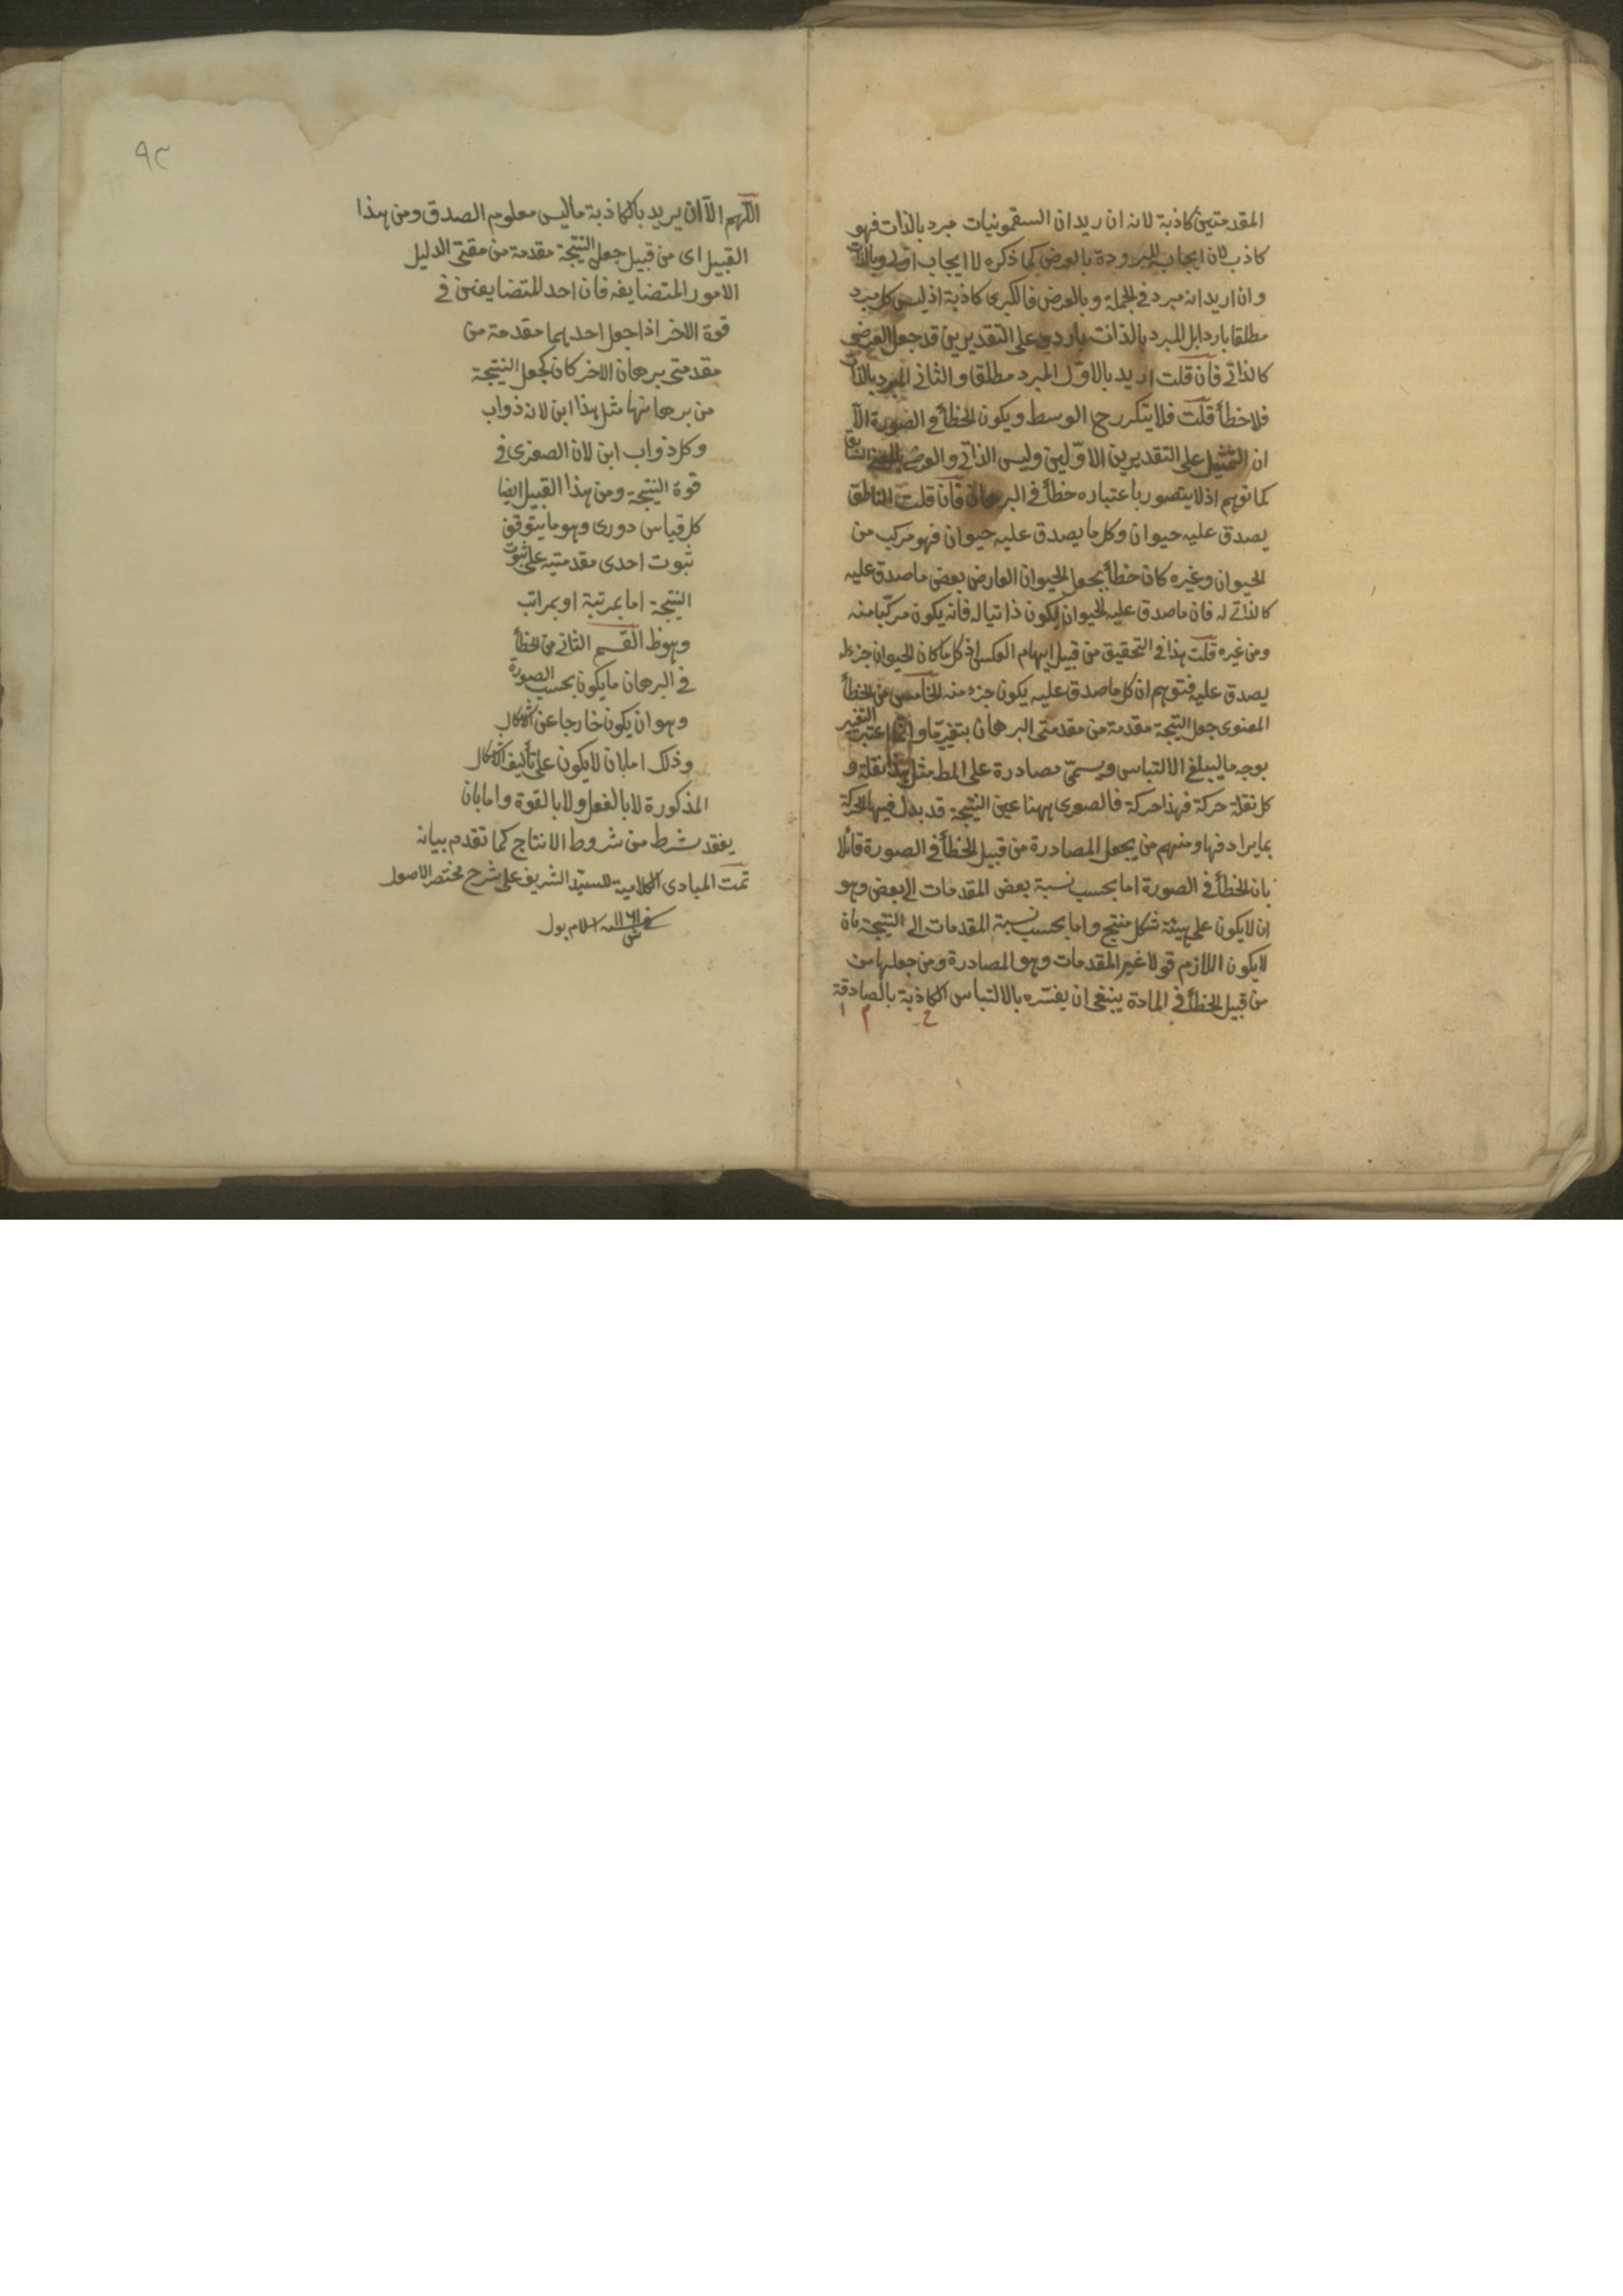 المقدمتين كاذبة لانه ان اريد ان السقمونيات مبرد بالذات فهو
كاذب لان ايجابه للبرودة بالعرض كما ذكره لا ايجاب اولى وبالذات
وان اريد انه مبرد فى الجملة وبالعرض فالكبرى كاذبة اذ ليس كل مبرد
مطلقا باردا بل المبرد بالذات بارد وعلى التقديرين قد جعل العرضى
كالذاتى فان قلت اريد بالاول المبرد مطلقا والثانى المبرد بالذات
فلا خطأ قلت فلا يتكرر ح الوسط ويكون الخطأ فى الصورة الا
ان التمثيل على التقديرين الاولين وليس الذاتى والعرضى بالمعنى السابق
كما توهم اذ لا يتصور باعتباره خطأ فى البرهان فان قلت الناطق
يصدق عليه حيوان وكل ما يصدق عليه حيوان فهو مركب من
الحيوان وغيره كان خطأ بجعل الحيوان العارض بعض ما صدق عليه
كالذاتى له فان ما صدق عليه الحيوان يكون ذاتيا له فانه يكون مركبا منه
ومن غيره قلت هذا فى التحقيق من قبيل ايهام العكس اذ كل ما كان الحيوان جزء له
يصدق عليه فتوهم ان كل ما صدق عليه يكون جزء منه الخامس من الخطأ
المعنوى جعل النتيجة مقدمة من مقدمتى البرهان بتغير ما وانما اعتبر التغير
بوجه ما ليبلغ الالتباس ويسمى مصادرة على المط مثل هذا نقلة و
كل نقلة حركة فهذا حركة فالصغرى ههنا عين النتيجة قد بدل فيها الحركة
بما يرادفها ومنهم من يجعل المصادرة من قبيل الخطأ فى الصورة قائلا
بان الخطأ فى الصورة اما بحسب نسبة بعض المقدمات الى بعض وهو
ان لا يكون على هيئة شكل منتج واما بحسب نسبة المقدمات الى النتيجة بان
لا يكون اللازم قولا غير المقدمات وهو المصادرة ومن جعلها من
من قبيل الخطأ فى المادة ينبغى ان يفسره بالالتباس الكاذبة بالصادقة
٩٢
اللهم الا ان يريد بالكاذبة ما ليس معلوم الصدق ومن هذا
القبيل اى من قبيل جعل النتيجة مقدمة من مقدمتى الدليل
الامور المتضايفه فان احد المتضايفين فى
قوة الاخر اذا جعل احدهما مقدمة من
مقدمتى برهان الاخر كان كجعل النتيجة
من برهانها مثل هذا ابن لانه ذو اب
وكل ذو اب ابن لان الصغرى فى
قوة النتيجة ومن هذا القبيل ايضا
كل قياس دورى وهو ما يتوقف
ثبوت احدى مقدمتيه على ثبوت
النتيجة اما بمرتبة او بمراتب
وهو ظ القسم الثانى من الخطأ
فى البرهان ما يكون بحسب الصورة
وهو ان يكون خارجا عن الاشكال
وذلك اما بان لا يكون على تأليف الاشكال
المذكورة لا بالفعل ولا بالقوة واما بان
يفقد شرط من شروط الانتاج كما تقدم بيانه
تمت المبادى الكلامية للسيد الشريف على شرح مختصر الاصول